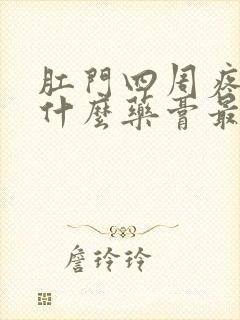 肛門四周疼
什麼藥膏最
詹玲玲